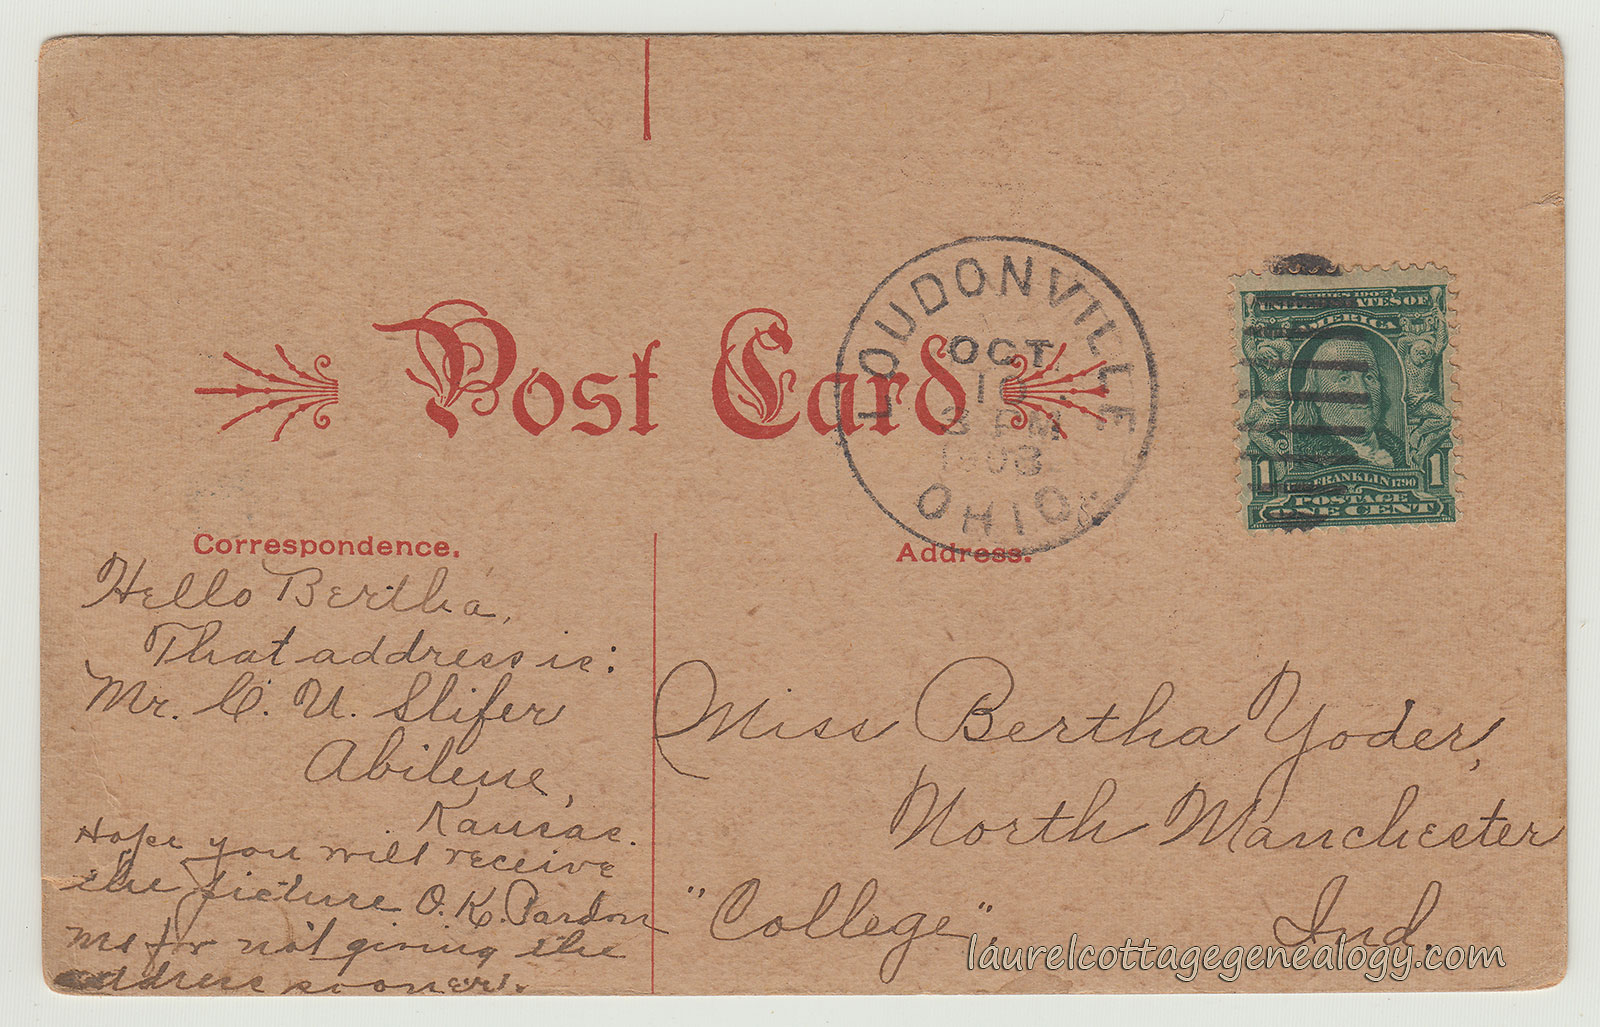 Post Card
LOUDONVILLE
OCT.
10
3 PM
OHIO
SERIES 1902
UNITED STATES OF
AMERICA
1 FRANKLIN 1790 1
POSTAGE
ONE CENT
Correspondence.
Hello Bertha,
That address is:
Mr. C. U. Slifer
Abilene,
Kansas.
Hope you will receive
the picture O.K. Pardon
me for not giving the
address sooner.
Address.
Miss Bertha Yoder,
North Manchester
"College", Ind.
laurelcottagegenealogy.com